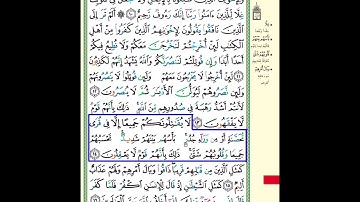 غِلًّا لِّلَّذِينَ ءَامَنُوا۟ رَبَّنَآ إِنَّكَ رَءُوفٌ رَّحِيمٌ ١٠ أَلَمْ تَرَ إِلَى
ٱلَّذِينَ نَافَقُوا۟ يَقُولُونَ لِإِخْوَٰنِهِمُ ٱلَّذِينَ كَفَرُوا۟ مِنْ أَهْلِ
ٱلْكِتَٰبِ لَئِنْ أُخْرِجْتُمْ لَنَخْرُجَنَّ مَعَكُمْ وَلَا نُطِيعُ فِيكُمْ
أَحَدًا أَبَدًا وَإِن قُوتِلْتُمْ لَنَنصُرَنَّكُمْ وَٱللَّهُ يَشْهَدُ إِنَّهُمْ لَكَٰذِبُونَ
١١ لَئِنْ أُخْرِجُوا۟ لَا يَخْرُجُونَ مَعَهُمْ وَلَئِن قُوتِلُوا۟ لَا يَنصُرُونَهُمْ
وَلَئِن نَّصَرُوهُمْ لَيُوَلُّنَّ ٱلْأَدْبَٰرَ ثُمَّ لَا يُنصَرُونَ ١٢
لَأَنتُمْ أَشَدُّ رَهْبَةً فِى صُدُورِهِم مِّنَ ٱللَّهِ ذَٰلِكَ بِأَنَّهُمْ قَوْمٌ
لَّا يَفْقَهُونَ ١٣ لَا يُقَٰتِلُونَكُمْ جَمِيعًا إِلَّا فِى قُرًى
مُّحَصَّنَةٍ أَوْ مِن وَرَآءِ جُدُرٍۭ بَأْسُهُم بَيْنَهُمْ شَدِيدٌ تَحْسَبُهُمْ
جَمِيعًا وَقُلُوبُهُمْ شَتَّىٰ ذَٰلِكَ بِأَنَّهُمْ قَوْمٌ لَّا يَعْقِلُونَ ١٤
كَمَثَلِ ٱلَّذِينَ مِن قَبْلِهِمْ قَرِيبًا ذَاقُوا۟ وَبَالَ أَمْرِهِمْ وَلَهُمْ عَذَابٌ
أَلِيمٌ ١٥ كَمَثَلِ ٱلشَّيْطَٰنِ إِذْ قَالَ لِلْإِنسَٰنِ ٱكْفُرْ فَلَمَّا كَفَرَ